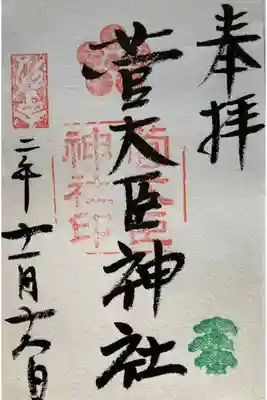 奉拝
菅大臣神社
神社印
二年十一月十六日